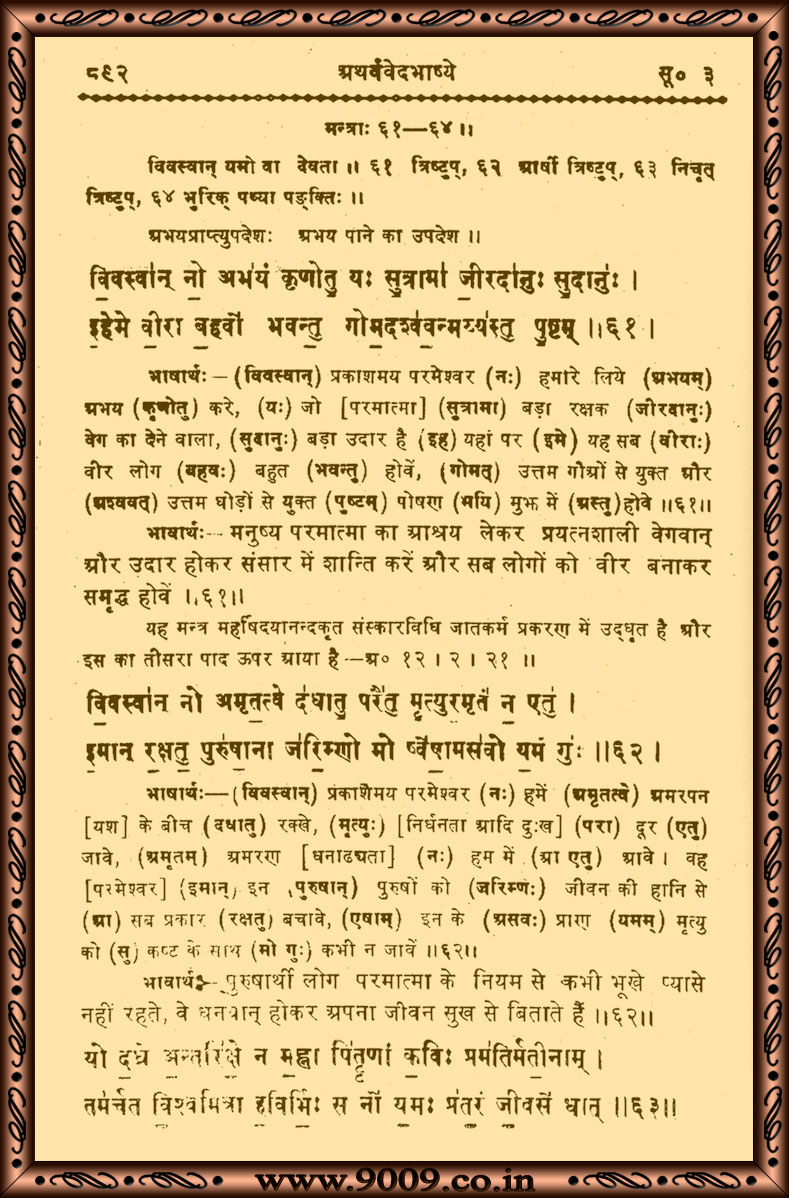 ८९२ अथर्ववेदभाष्ये सू० ३
मन्त्राः ६१—६४ ॥
विवस्वान् यमो वा देवता ॥ ६१ त्रिष्टुप्, ६२ आर्षी त्रिष्टुप्, ६३ निचृत्
त्रिष्टुप्, ६४ भुरिक् पथ्या पङ्क्तिः ॥
अभयप्राप्त्युपदेशः अभय पाने का उपदेश ॥
वि॒वस्वा॑न् नो॒ अभ॑यं कृणोतु॒ यः सु॒त्रामा॑ जी॒रदा॑नुः सु॒दानुः॑ ।
इ॒हेमे वी॒रा ब॒हवो॑ भवन्तु॒ गोम॒दश्व॑व॒न्मय्य॑स्तु पु॒ष्टम् ॥६१॥
भाषार्थः—(विवस्वान्) प्रकाशमय परमेश्वर (नः) हमारे लिये (अभयम्)
अभय (कृणोतु) करे, (यः) जो [परमात्मा] (सुत्रामा) बड़ा रक्षक (जीरदानुः)
वेग का देने वाला, (सुदानुः) बड़ा उदार है (इह) यहां पर (इमे) यह सब (वीराः)
वीर लोग (बहवः) बहुत (भवन्तु) होवें, (गोमत्) उत्तम गौओं से युक्त और
(अश्ववत्) उत्तम घोड़ों से युक्त (पुष्टम्) पोषण (मयि) मुझ में (अस्तु)होवे ॥६१॥
भावार्थः—मनुष्य परमात्मा का आश्रय लेकर प्रयत्नशाली वेगवान्
और उदार होकर संसार में शान्ति करें और सब लोगों को वीर बनाकर
समृद्ध होवें ॥६१॥
यह मन्त्र महर्षिदयानन्दकृत संस्कारविधि जातकर्म प्रकरण में उद्धृत है और
इस का तीसरा पाद ऊपर आया है—अ० १२ । २ । २१ ॥
वि॒वस्वा॑न् नो अमृत॒त्वे द॑धातु॒ परै॑तु मृ॒त्युर॒मृतं॑ न॒ एतु॑ ।
इ॒मान् र॑क्षतु॒ पुरु॑षा॒ना ज॑रि॒म्णो मो ष्वे॑षा॒मस॑वो य॒मं गुः॑ ॥६२॥
भाषार्थः—(विवस्वान्) प्रकाशमय परमेश्वर (नः) हमें (अमृतत्वे) अमरपन
[यश] के बीच (दधातु) रक्खे, (मृत्युः) [निर्धनता आदि दुःख] (परा) दूर (एतु)
जावे, (अमृतम्) अमरण [धनाढ्यता] (नः) हम में (आ एतु) आवे । वह
[परमेश्वर] (इमान्) इन (पुरुषान्) पुरुषों को (जरिम्णः) जीवन की हानि से
(आ) सब प्रकार (रक्षतु) बचावे, (एषाम्) इन के (असवः) प्राण (यमम्) मृत्यु
को (सु) कष्ट के साथ (मो गुः) कभी न जावें ॥६२॥
भावार्थः—पुरुषार्थी लोग परमात्मा के नियम से कभी भूखे प्यासे
नहीं रहते, वे धनवान् होकर अपना जीवन सुख से बिताते हैं ॥६२॥
यो द॒ध्रे अ॒न्तरि॑क्षे॒ न म॒ह्ना पि॑तॄ॒णां क॒विः प्रम॑तिर्मती॒नाम् ।
तम॑र्चत वि॒श्वमि॑त्रा ह॒विर्भिः॒ स नो॑ य॒मः प्र॑त॒रं जी॒वसे॑ धात् ॥६३॥
www.9009.co.in